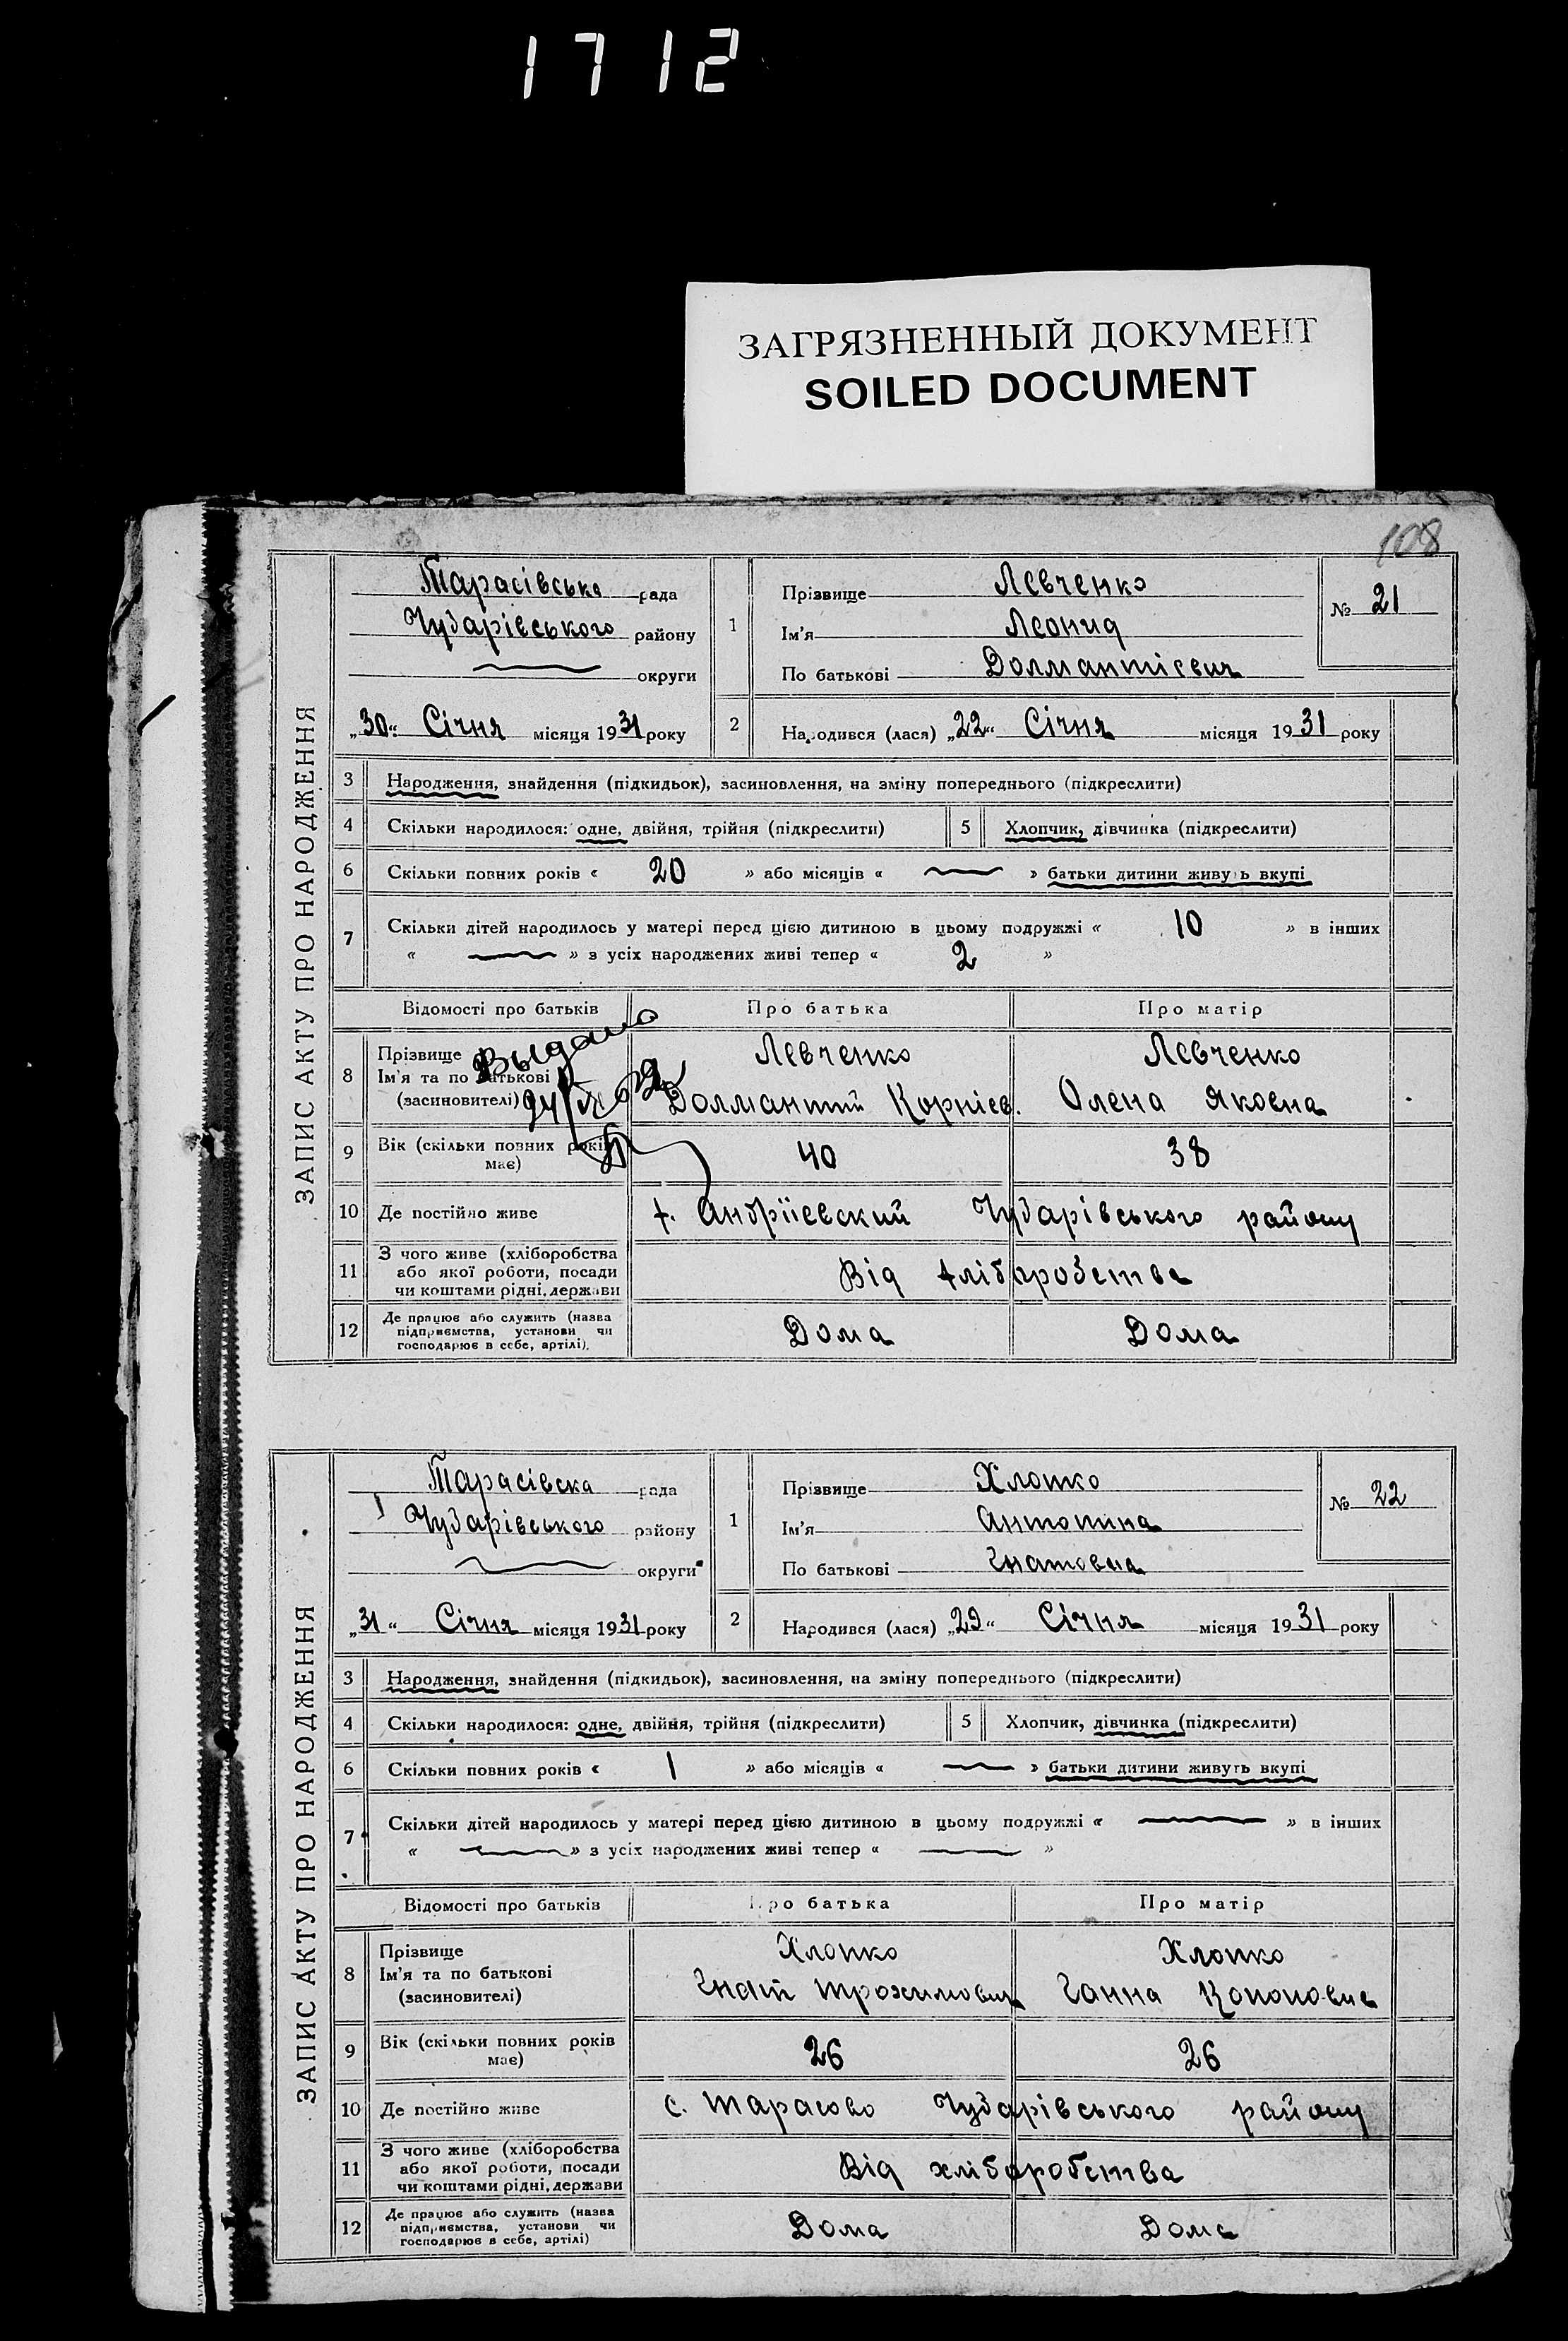 1712
ЗАГРЯЗНЕННЫЙ ДОКУМЕНТ
SOILED DOCUMENT
108
ЗАПИС АКТУ ПРО НАРОДЖЕННЯ
Тарасівська рада
Чубарівського району
округи
„30“ Січня місяця 1931 року
1
Прізвище Левченко
Ім'я Леонид
По батькові Долмантієвич
№ 21
2 Народився (лася) „22“ Січня місяця 1931 року
3 Народження, знайдення (підкидьок), засиновлення, на зміну попереднього (підкреслити)
4 Скільки народилося: одне, двійня, трійня (підкреслити) 5 Хлопчик, дівчинка (підкреслити)
6 Скільки повних років « 20 » або місяців « » батьки дитини живуть вкупі
7 Скільки дітей народилось у матері перед цією дитиною в цьому подружжі « 10 » в інших
« » з усіх народжених живі тепер « 2 »
Відомості про батьків Про батька Про матір
8 Прізвище Левченко Левченко
Ім'я та по батькові
(засиновителі) Долмантий Корнієв. Олена Яковна
Выдано
9 Вік (скільки повних років має) 40 38
10 Де постійно живе х. Андріївский Чубарівського району
11 З чого живе (хліборобства
або якої роботи, посади
чи коштами рідні, держави Від хліборобства
12 Де працює або служить (назва
підприємства, установи чи
господарює в себе, артілі). Дома Дома
ЗАПИС АКТУ ПРО НАРОДЖЕННЯ
Тарасівска рада
Чубарівського району
округи
„31“ Січня місяця 1931 року
1
Прізвище Хлопко
Ім'я Антонина
По батькові Гнатовна
№ 22
2 Народився (лася) „29“ Січня місяця 1931 року
3 Народження, знайдення (підкидьок), засиновлення, на зміну попереднього (підкреслити)
4 Скільки народилося: одне, двійня, трійня (підкреслити) 5 Хлопчик, дівчинка (підкреслити)
6 Скільки повних років « 1 » або місяців « » батьки дитини живуть вкупі
7 Скільки дітей народилось у матері перед цією дитиною в цьому подружжі « » в інших
« » з усіх народжених живі тепер « »
Відомості про батьків Про батька Про матір
8 Прізвище Хлопко Хлопко
Ім'я та по батькові
(засиновителі) Гнат Трохимович Ганна Кононовна
9 Вік (скільки повних років має) 26 26
10 Де постійно живе с. Тарасово Чубарівського району
11 З чого живе (хліборобства
або якої роботи, посади
чи коштами рідні, держави Від хліборобства
12 Де працює або служить (назва
підприємства, установи чи
господарює в себе, артілі) Дома Дома